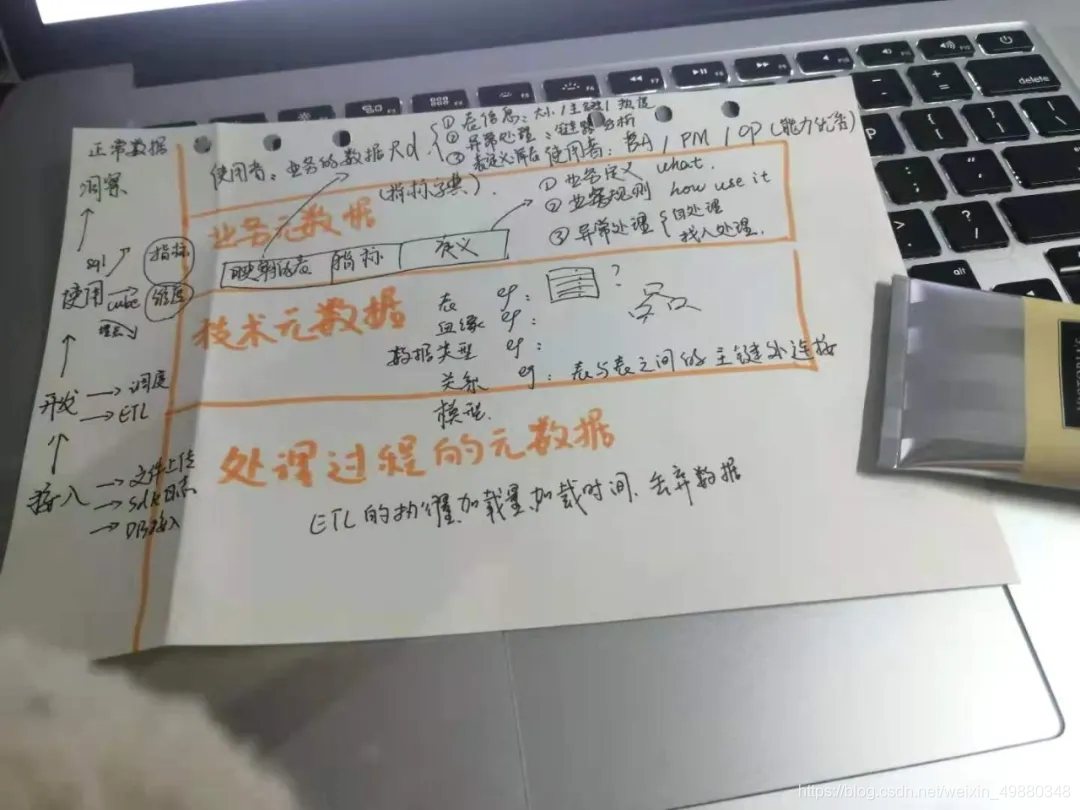 正常数据
洞察
使用 sql cube 理多
指标
维度
开发 → 调度
→ ETL
接入 → 文件上传
→ sdk日志
→ DB接入
使用者：业务的数据Rd
① 表信息：大小/主键/热度
② 异常处理：链路分析
③
使用者：BA / PM / op (能力优秀)
(指标字典)
业务元数据
指标 定义
① 业务定义 what.
② 业务规则 how use it
③ 异常处理 { 自处理
找人处理.
技术元数据
表 eg: ?
血缘 eg:
数据类型 eg:
关系 eg: 表与表之间的主键外连接
模型.
处理过程的元数据
ETL的 加载量、加载时间、丢弃数据
delete
alt
https://blog.csdn.net/weixin_49880348